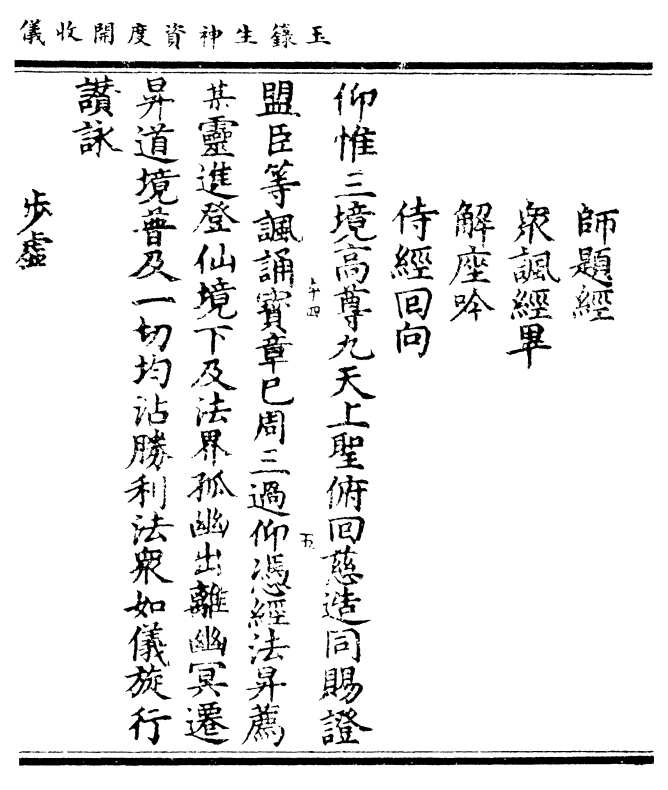 玉籙生神資度開收儀
師題經
衆諷經畢
解座吟
侍經回向
仰惟三境高尊九天上聖俯回慈造同賜證
盟臣等諷誦寶章已周三過仰憑經法昇薦
某靈進登仙境下及法界孤幽出離幽冥遷
昇道境普及一切均沾勝利法衆如儀旋行
讚詠
步虛